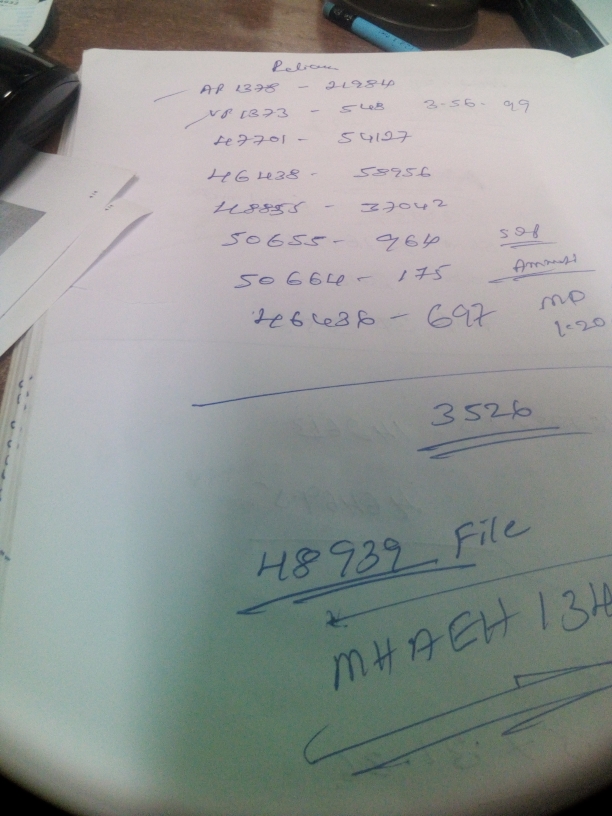 Reliance
AP 1378 - 21984
UP 1373 - 548 3-56-99
47701 - 54127
46438 - 58956
48855 - 37042
50655 - 964
50664 - 175
Amount
46436 - 697 MP
1-20
3526
48939 File
MHAEH 13H